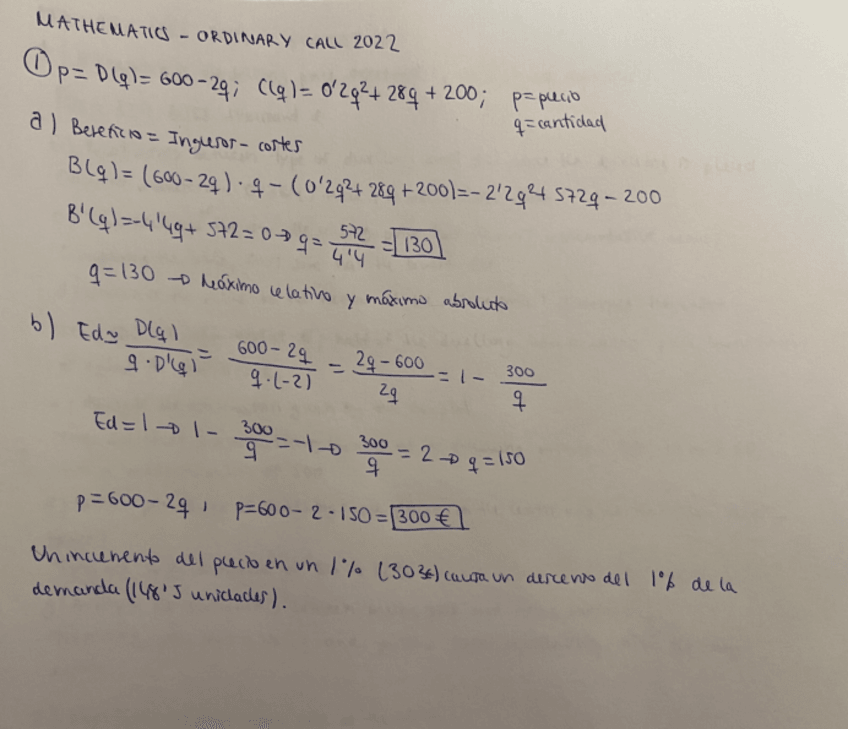 MATHEMATICS - ORDINARY CALL 2022
① p = D(q) = 600 - 2q; C(q) = 0'2q² + 28q + 200; p = precio
q = cantidad
a) Beneficio = Ingresos - costes
B(q) = (600 - 2q) · q - (0'2q² + 28q + 200) = -2'2q² + 572q - 200
B'(q) = -4'4q + 572 = 0 → q = 572/4'4 = 130
q = 130 → Máximo relativo y máximo absoluto
b) Ed ≃ D(q)/q · D'(q) = 600 - 2q/q · (-2) = 2q - 600/2q = 1 - 300/q
Ed = 1 → 1 - 300/q = -1 → 300/q = 2 → q = 150
p = 600 - 2q , p = 600 - 2 · 150 = 300 €
Un incremento del precio en un 1% (303€) causa un descenso del 1% de la
demanda (148'5 unidades).